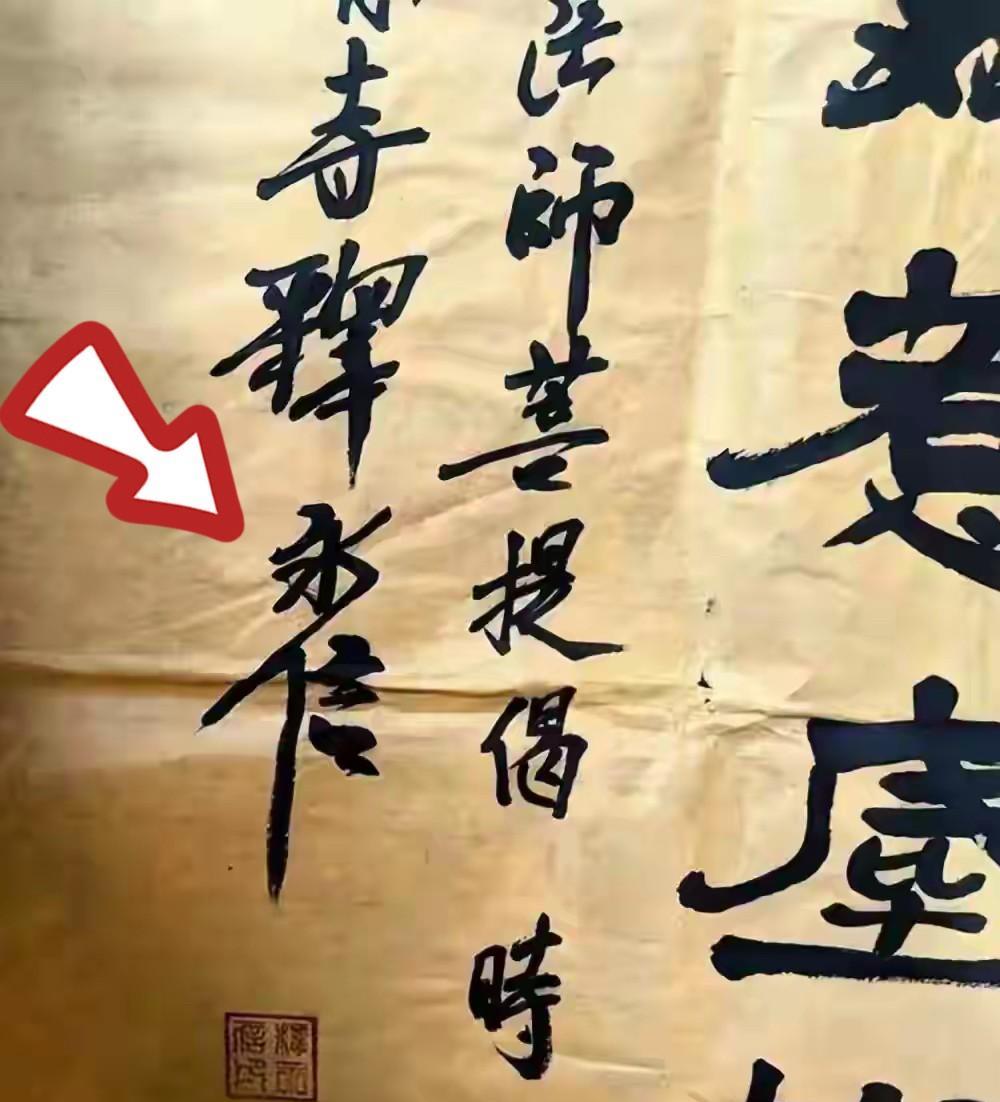 惹塵
法師菩提偈 時
春釋永信
釋永信印